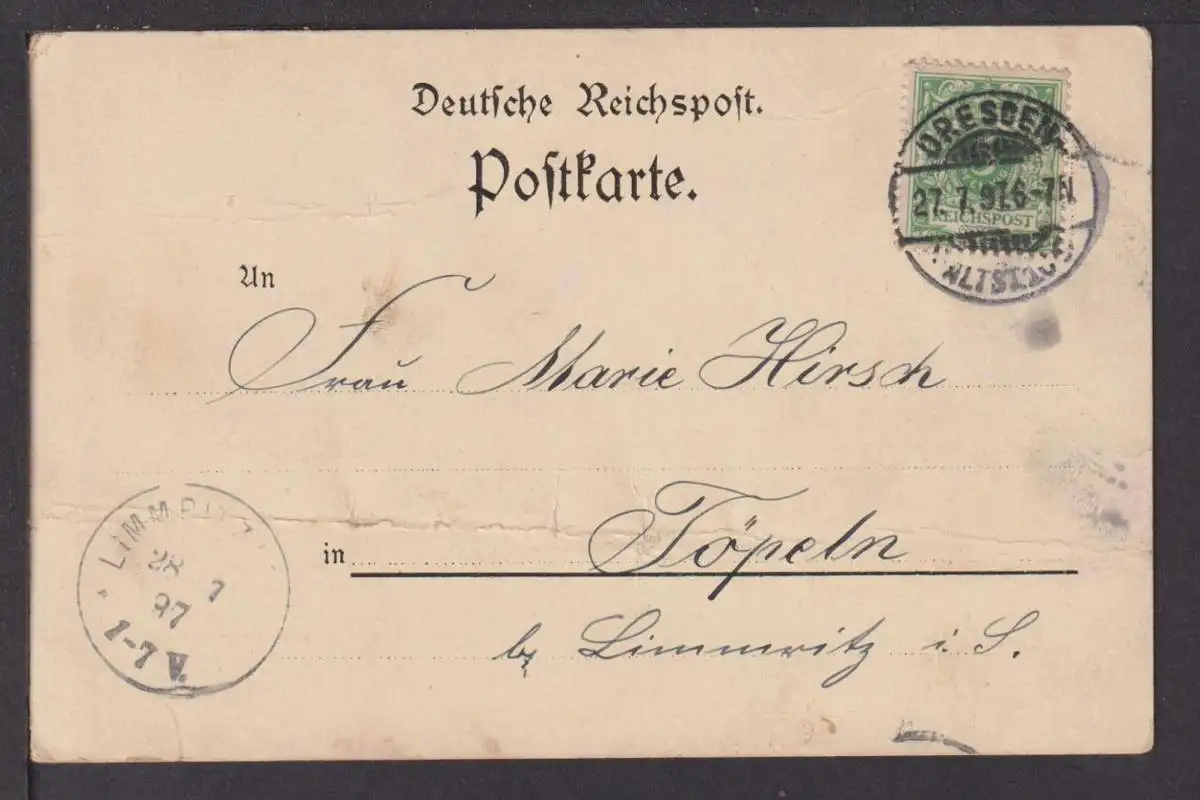 Deutsche Reichspost.
Postkarte.
DRESDEN
27. 7. 97. 6-7 N
REICHSPOST
An
Frau Marie Hirsch
in Töpeln
b/ Limmritz i. S.
LIMMRITZ
28 7
97
1-7 V.